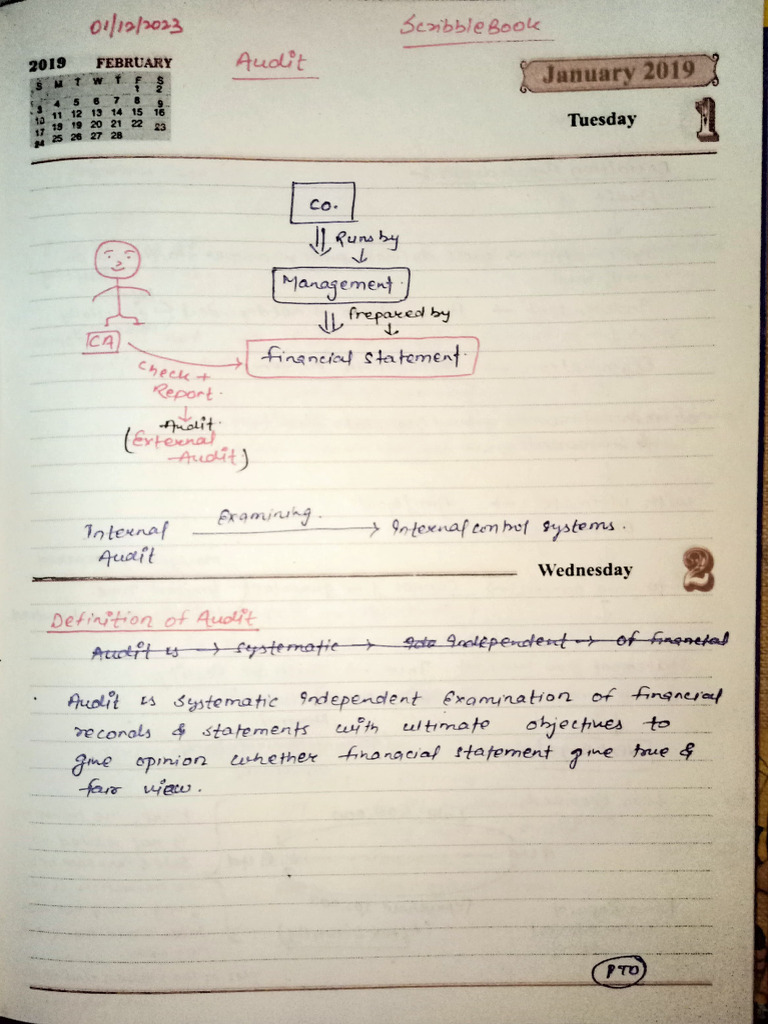 01/12/2023
ScribbleBook
2019 FEBRUARY
Audit
January 2019
S M T W T F S
1 2
3 4 5 6 7 8 9
10 11 12 13 14 15 16
17 18 19 20 21 22 23
24 25 26 27 28
Tuesday 1
Co.
Runs by
Management.
Prepared by
CA
financial statement.
Check +
Report.
Audit.
(External
Audit)
Internal Examining. Internal control systems.
Audit
Wednesday 2
Definition of Audit
Audit is → systematic → Independent → of financial
Audit is systematic Independent Examination of financial
records & statements with ultimate objectives to
give opinion whether finanacial statement give true &
fair view.
PTO